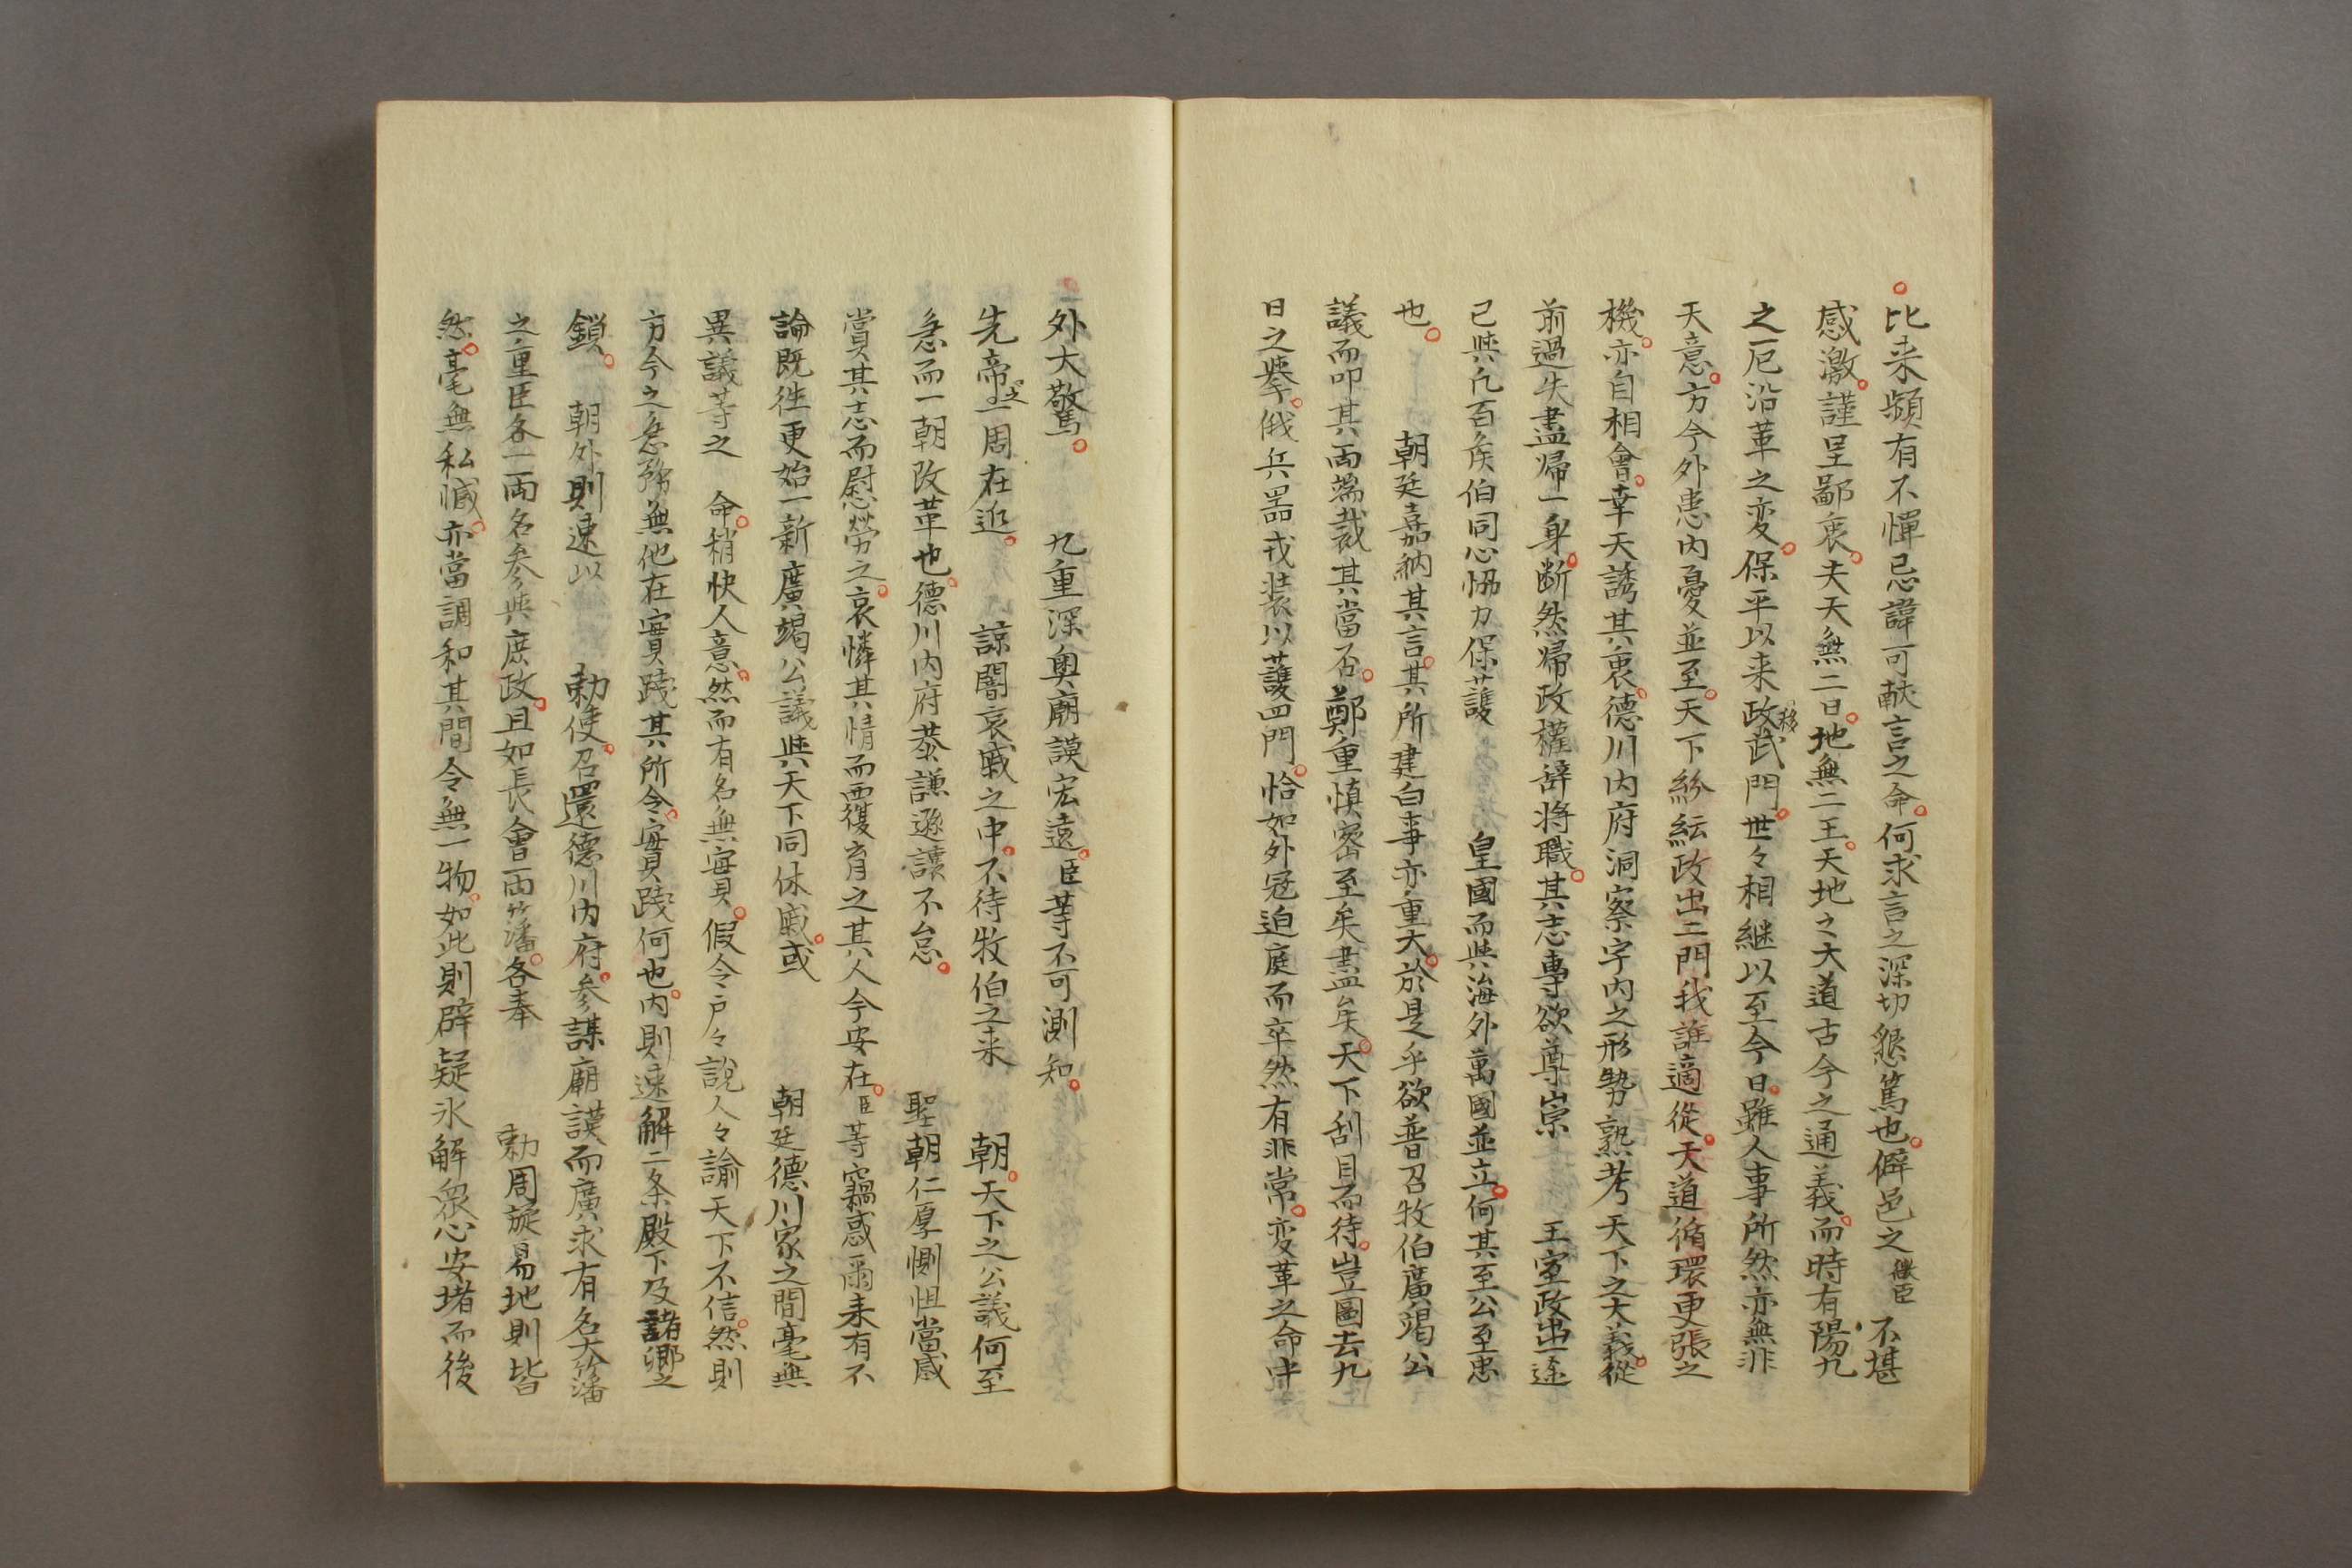 比来頻有不憚忌諱可献言之命。何求言之深切懇篤也。僻邑之僕臣不堪
感激。謹呈鄙衷。夫天無二日。地無二王。天地之大道古今之通義。而時有陽九
之厄沿革之変。保平以来政移武門。世々相継以至今日。雖人事所然亦無非
天意。方今外患内憂並至。天下紛紜政出二門我誰適從。天道循環更張之
機。亦自相會。幸天誘其衷。德川内府洞察宇内之形勢熟考天下之大義。從
前過失盡帰一身。断然帰政權辞将職。其志專欲尊崇　王室政出一途
已與凢百矦伯同心恊力保護　皇國而與海外萬國並立。何其至公至忠
也。　朝廷嘉納其言。其所建白事亦重大。於是乎欲普召牧伯廣竭公
議而叩其両端裁其當否。鄭重慎密至矣盡矣。天下刮目而待。豈圖去九
日之擧。俄兵器戎装以護四門。恰如外冦迫庭而卒然有非常。変革之命中
外大驚。　九重深奥廟謨宏遠。臣等不可測知。
先帝之一周在近。　諒闇哀戚之中。不待牧伯之来　朝。天下之公議何至
急而一朝改革也。德川内府恭謙遜讓不怠。　聖朝仁厚惻怛當感
賞其志而慰労之。哀憐其情而覆育之其人今安在。臣等竊惑焉未有不
論既徃更始一新廣竭公議與天下同休戚。或　朝廷德川家之間毫無
異議等之　命。稍快人意。然而有名無實。假令戸々說人々諭天下不信。然則
方今之急務無他在實踐其所令。實踐何也。内則速解二条殿下及諸卿之
鎖。　朝外則速以　勅使。召還德川内府。参謀廟謨而廣求有名大藩
之重臣各一両名参與庶政。且如長會両藩。各奉　勅周旋易地則皆
然。毫無私慽。亦當調和其間令無一物。如此則辟疑氷解衆心安堵而後